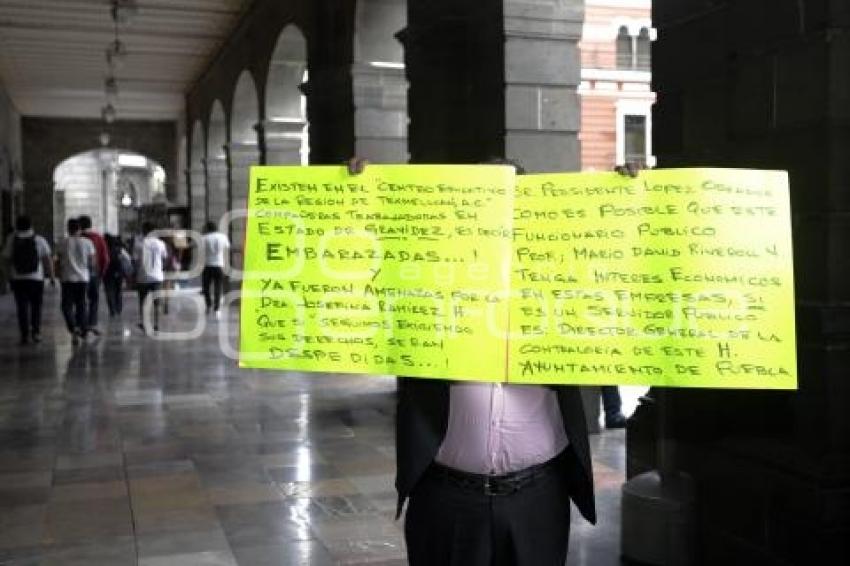 EXISTEN EN EL "CENTRO EDUCATIVO
DE LA REGION DE TEXMELUCAN, A.C."
COMPAÑERAS TRABAJADORAS EN
ESTADO DE GRAVIDEZ, ES DECIR
EMBARAZADAS...!
Y
YA FUERON AMENAZAS POR LA
DRA. JOSEFINA RAMIREZ H.
QUE SI "SEGUIMOS EXIGIENDO
SUS DERECHOS, SERAN
DESPEDIDAS...!
SR. PRESIDENTE LOPEZ OBRADOR
COMO ES POSIBLE QUE ESTE
FUNCIONARIO PUBLICO
PROF; MARIO DAVID RIVEROLL V.
TENGA INTERES ECONOMICOS
EN ESTAS EMPRESAS, SI
ES UN SERVIDOR PUBLICO
ES: DIRECTOR GENERAL DE LA
CONTRALORIA DE ESTE H.
AYUNTAMIENTO DE PUEBLA